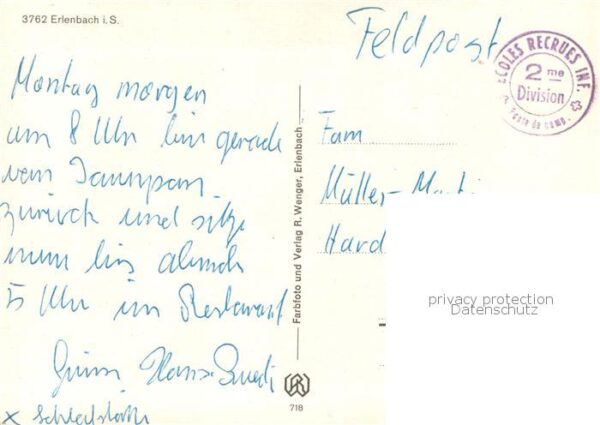 3762 Erlenbach i.S.
Montag morgen
um 8 Uhr bin gerade
vom
zurück und sitze
nun bis abends
5 Uhr im Restaurant
Hans
x
Farbfoto und Verlag R. Wenger, Erlenbach
718
Feldpost
ECOLES RECRUES INF.
2me
Division
Poste de camp.
Fam
Müller-
Hard
privacy protection
Datenschutz